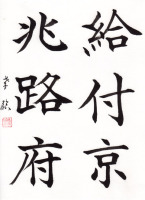 給付京
兆路府